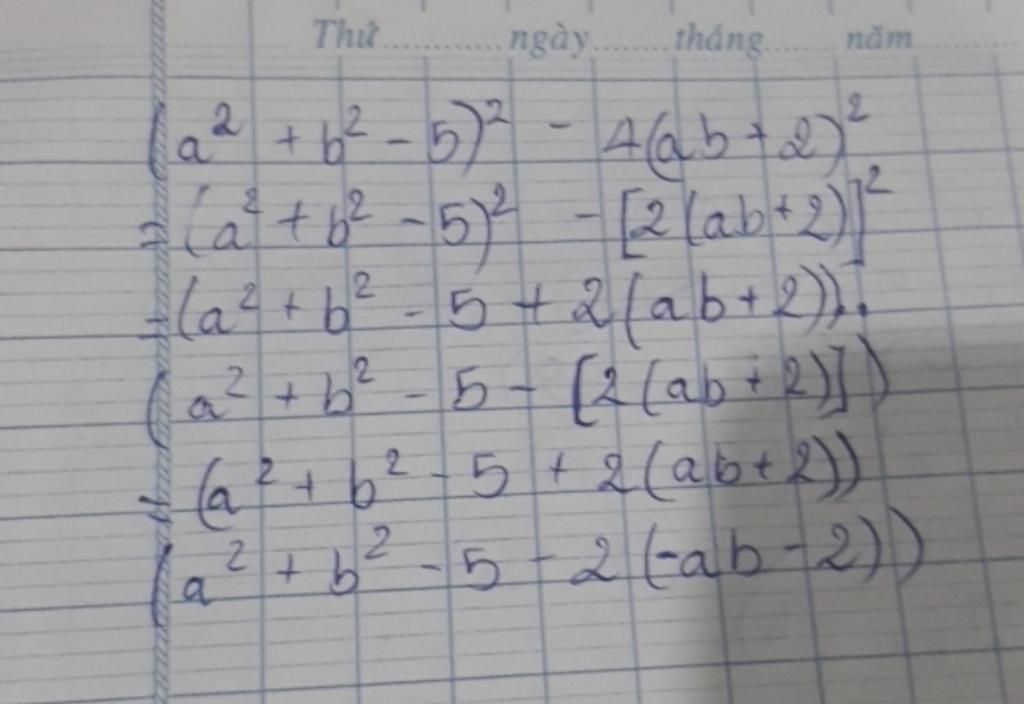 Thứ............ngày.........tháng.........năm............
(a² + b² - 5)² - 4(ab + 2)²
= (a² + b² - 5)² - [2(ab+2)]²
= (a² + b² - 5 + 2(ab+2)).
(a² + b² - 5 - [2(ab+2)])
= (a² + b² - 5 + 2(ab+2))
(a² + b² - 5 - 2(-ab - 2))